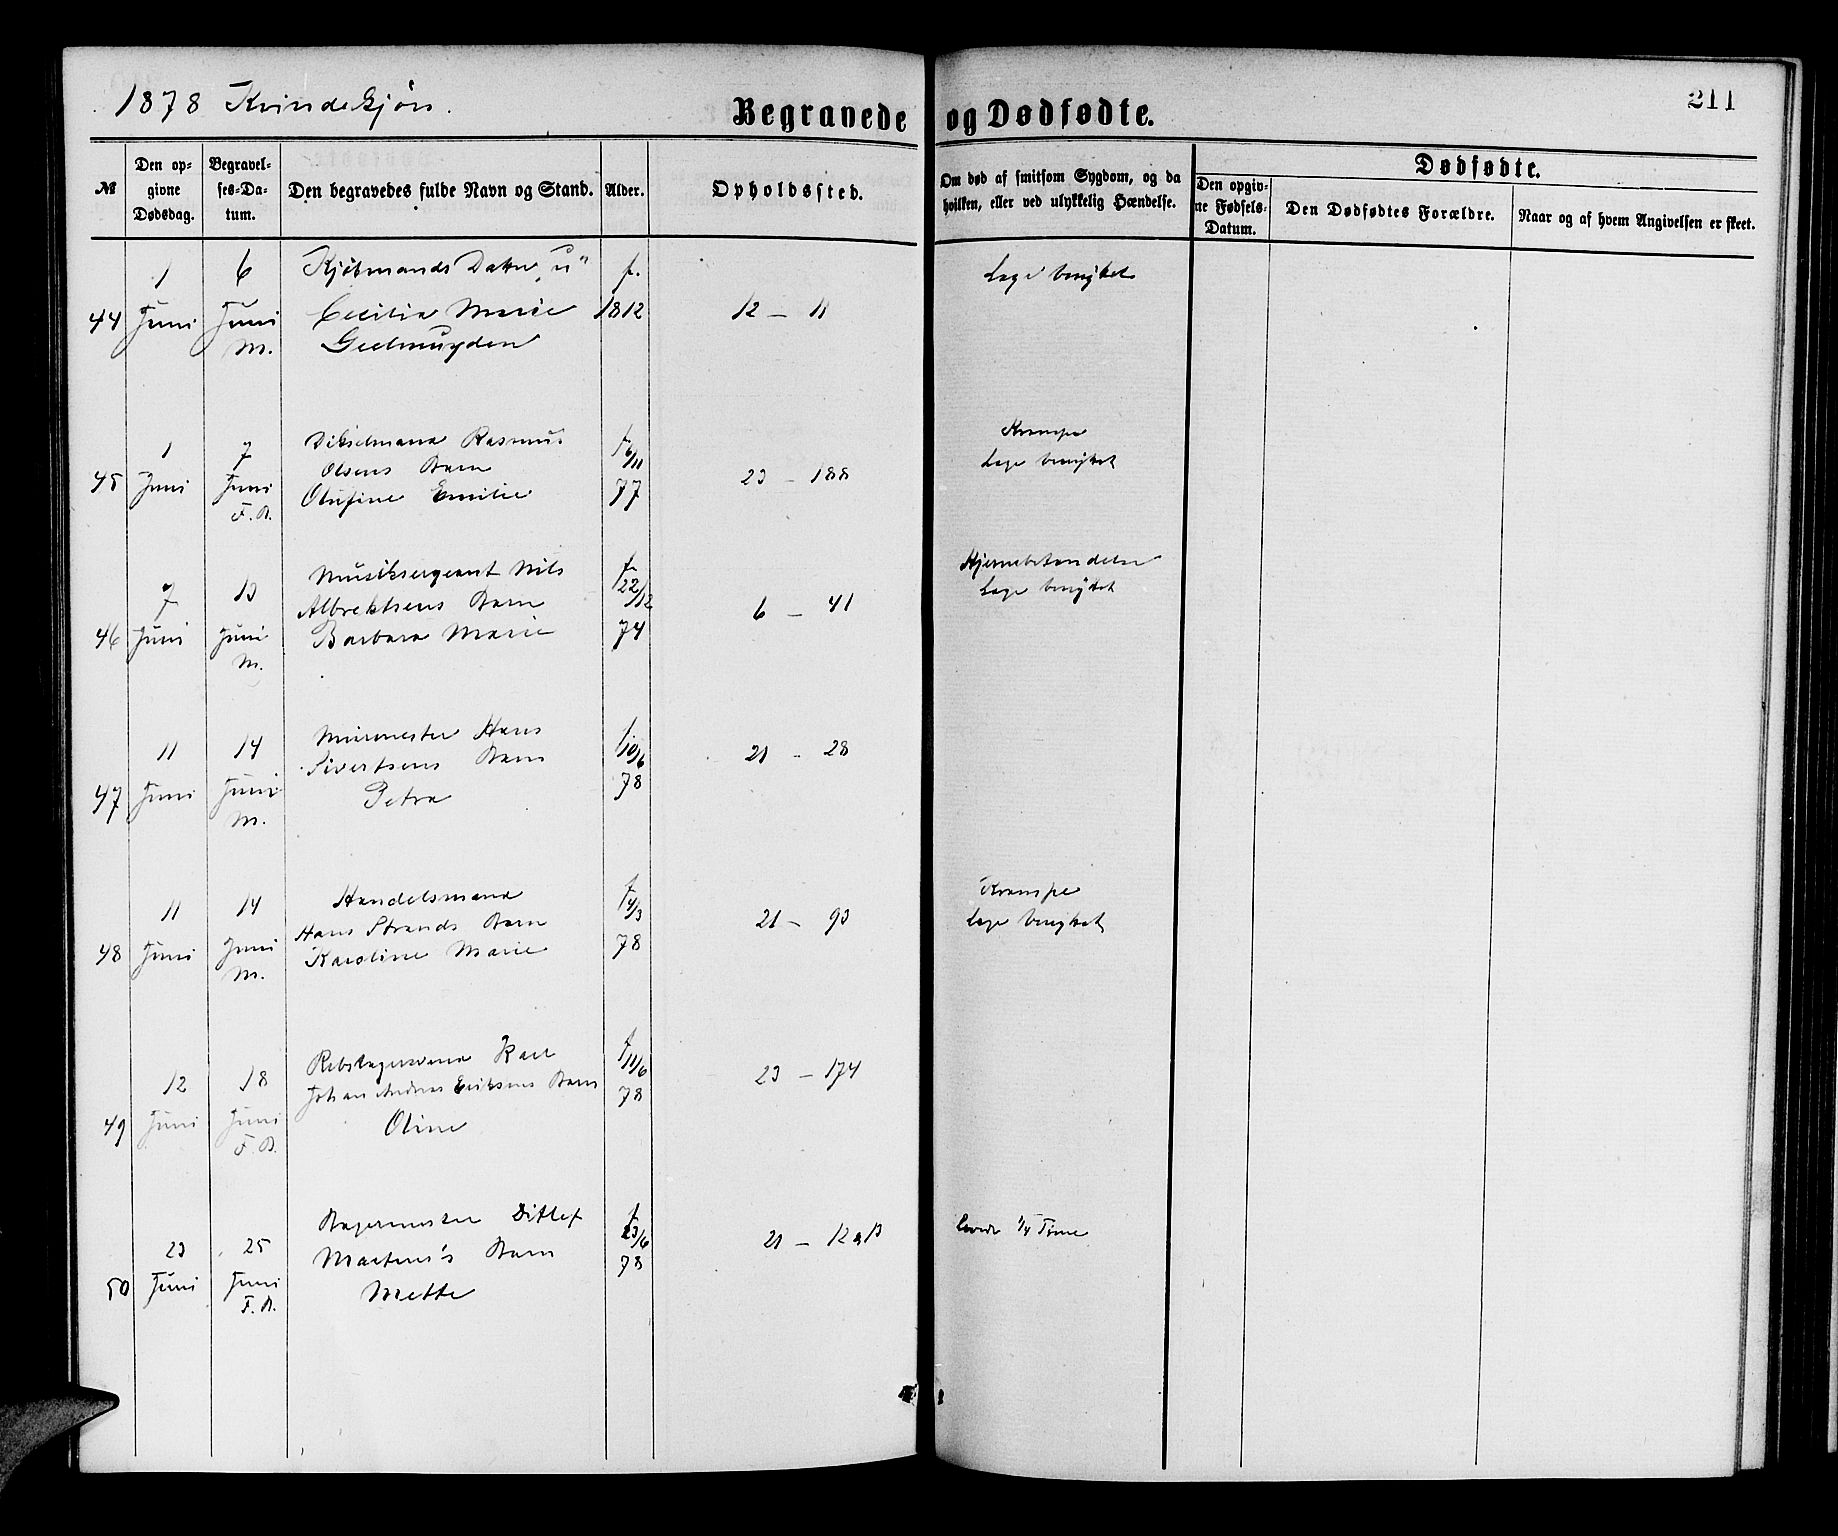 1878 Kvindekjøn.
Begravede og Dødfødte.
211
№
Den opgivne Dødsdag.
Begravelses-Datum.
Den begravedes fulde Navn og Stand.
Alder.
Opholdssted.
Om død af smitsom Sygdom, og da hvilken, eller ved ulykkelig Hændelse.
Dødfødte.
Den opgivne Fødsels-Datum.
Den Dødfødtes Forældre.
Naar og af hvem Angivelsen er skeet.
44
1 Juni
6 Juni M.
Kjøbmands Datter "u"
Cecilia Marie
Geelmuyden
f. 1812
12 – 11
Læge benyttet
45
1 Juni
7 Juni F.B.
Dikselmand Rasmus
Olsens Barn
Olufine Emilie
f. 6/11 77
23 – 188
Krampe
Læge benyttet
46
7 Juni
13 Juni M.
Musiksergeant Nils
Albrektsens Barn
Barbara Marie
f. 22/12 74
6 – 41
Hjernebetændelse
Læge benyttet
47
11 Juni
14 Juni M.
Murmester Hans
Sivertsens Barn
Petra
f. 10/6 78
21 – 28
48
11 Juni
14 Juni M.
Handelsmand
Hans Strands Barn
Karoline Marie
f. 4/3 78
21 – 93
Krampe
Læge benyttet
49
12 Juni
18 Juni F.B.
Rebslagersvend Karl
Johan Andreas Eriksens Barn
Oline
f. 11/6 78
23 – 174
50
23 Juni
25 Juni F.B.
Bagermester Ditlef
Martens's Barn
Mette
f. 23/6 78
21 – 12 a B
Levede 1/4 Time